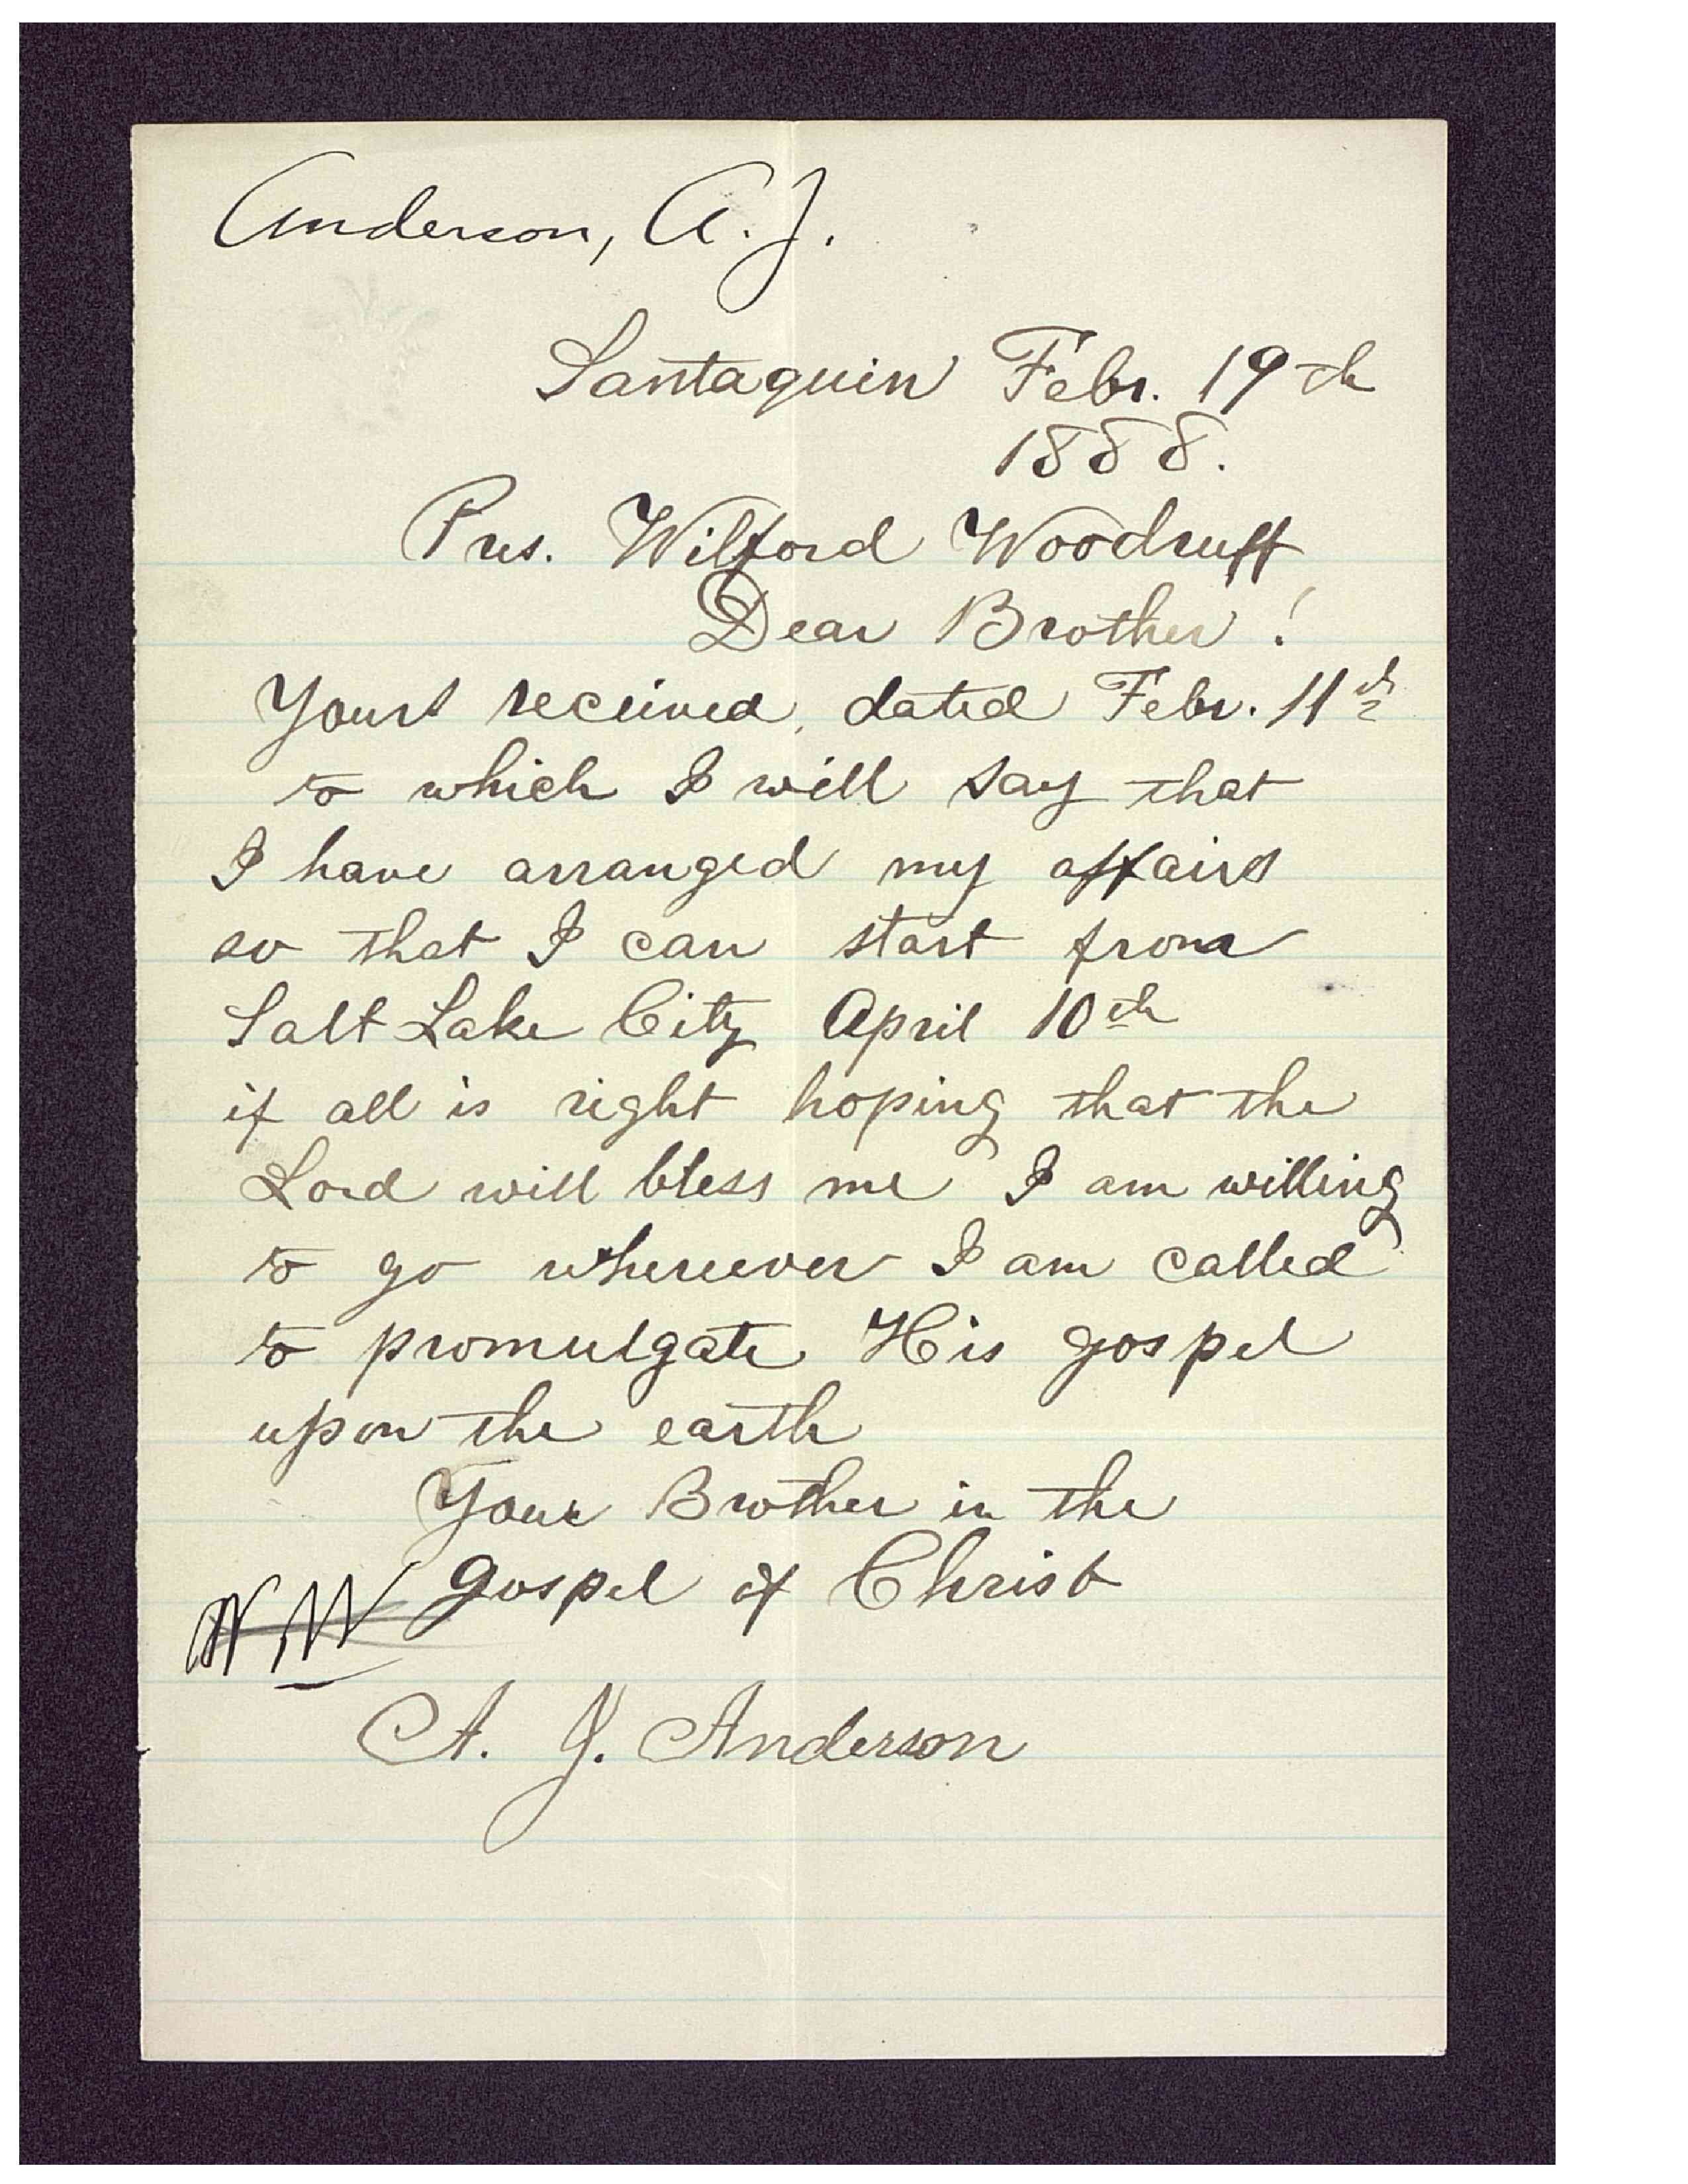 Anderson, A. J.
Santaquin Febr. 19th
1888.
Pres. Wilford Woodruff
Dear Brother!
Yours received, dated Febr. 11th
to which I will say that
I have arranged my affairs
so that I can start from
Salt Lake City April 10th
if all is right hoping that the
Lord will bless me I am willing
to go whereever I am called
to promulgate His gospel
upon the earth
Your Brother in the
gospel of Christ
A. J. Anderson